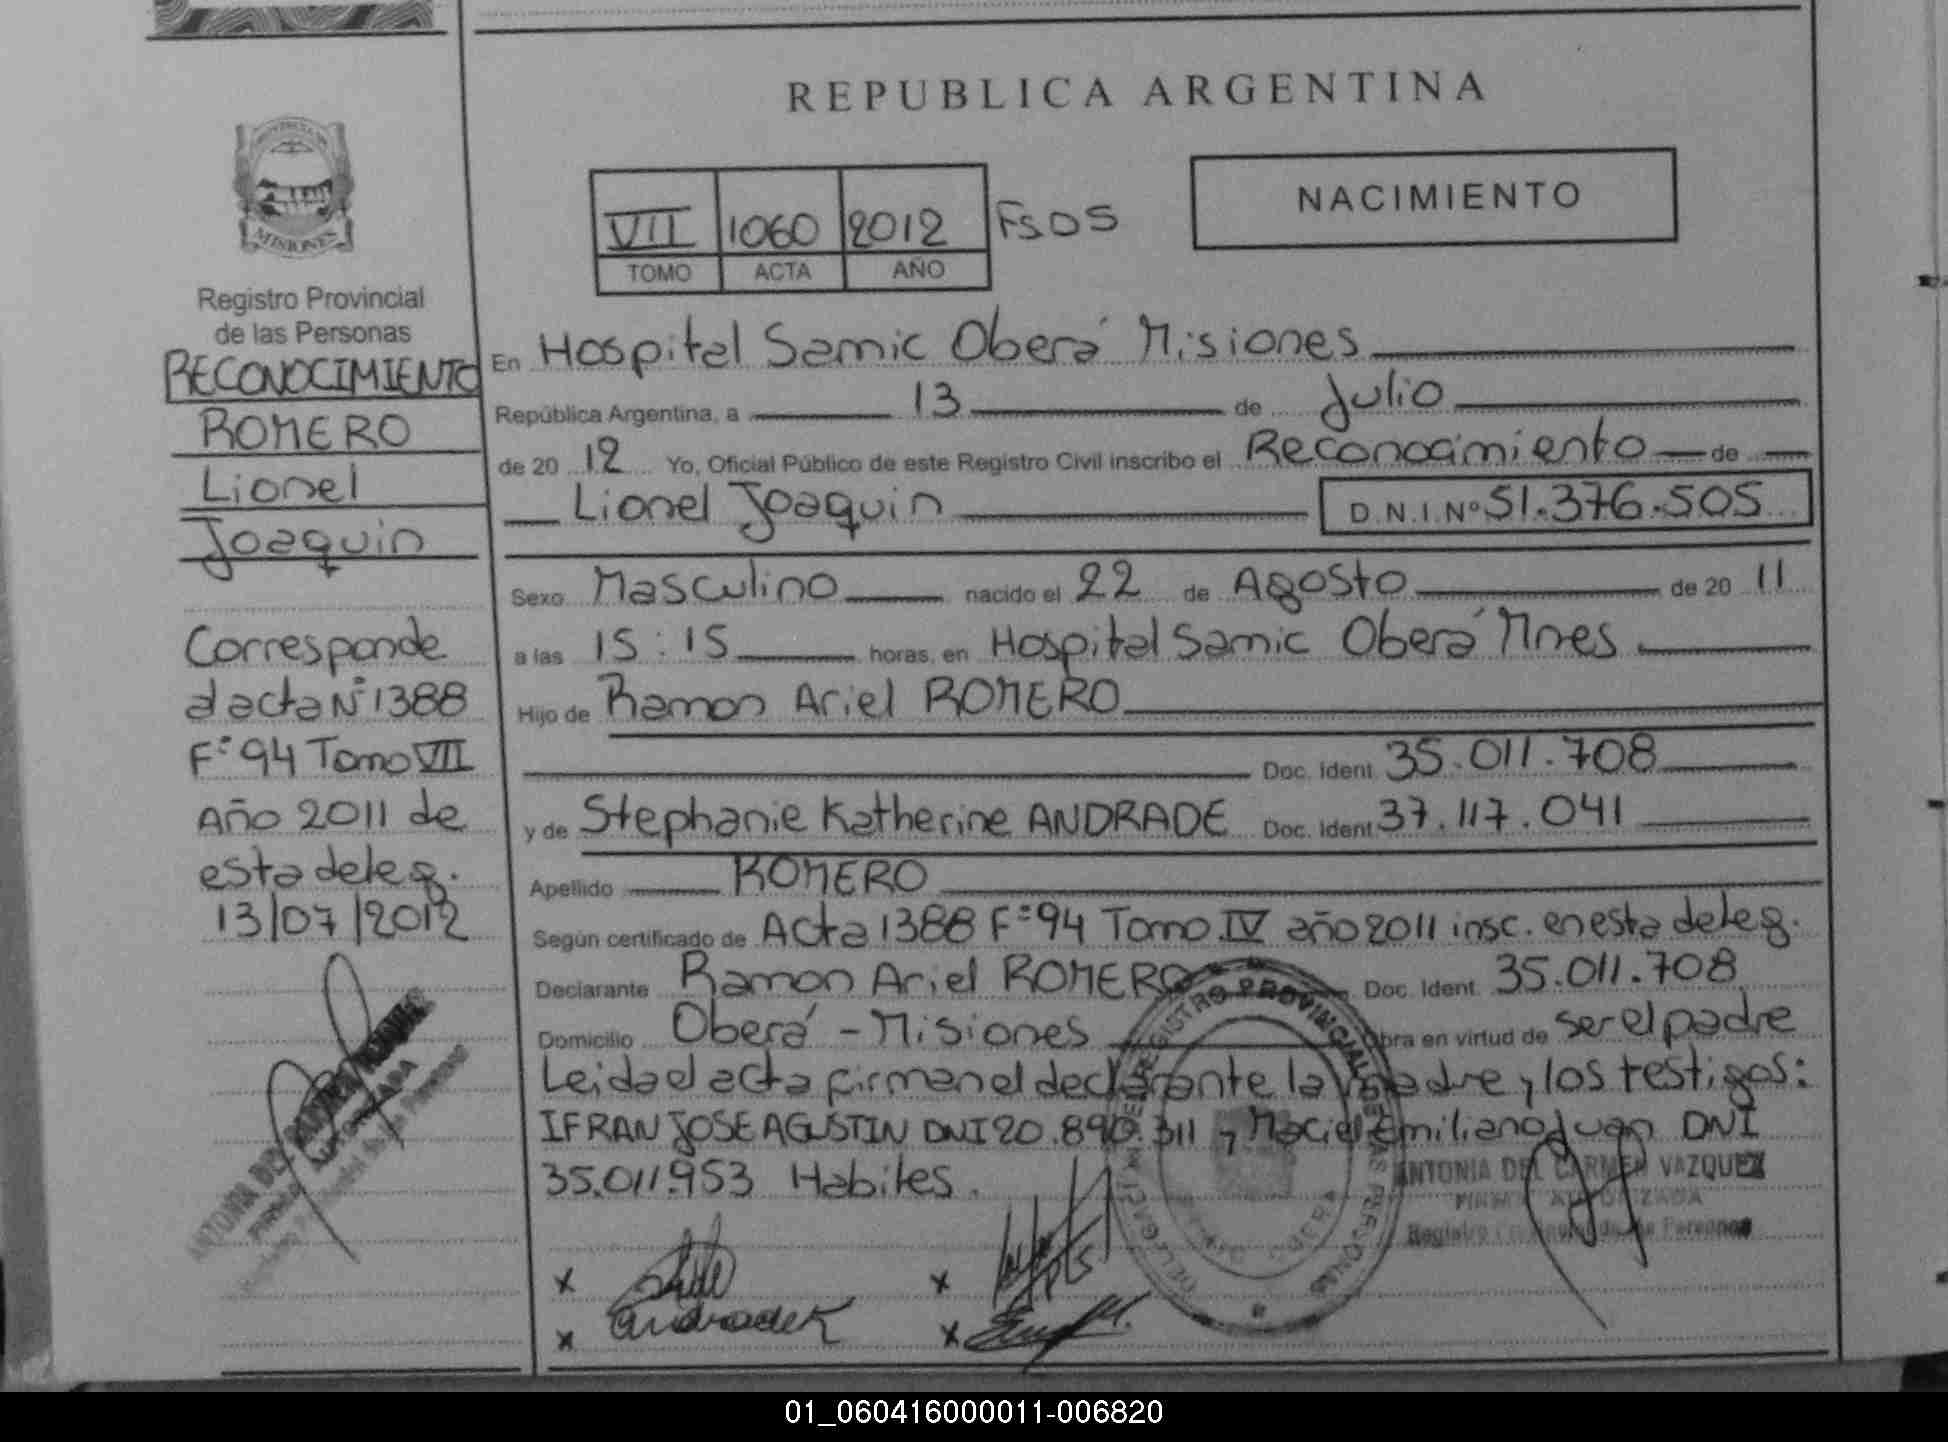 REPUBLICA ARGENTINA
PROVINCIA DE
MISIONES
Registro Provincial
de las Personas
RECONOCIMIENTO
ROMERO
Lionel
Joaquin
Corresponde
al acta N° 1388
F° 94 Tomo VII
Año 2011 de
esta deleg.
13/07/2012
ANTONIA DEL CARMEN VAZQUEZ
FIRMA AUTORIZADA
VII 1060 2012 Fs 05
TOMO ACTA AÑO
NACIMIENTO
En Hospital Samic Oberá Misiones
República Argentina, a 13 de Julio
de 20 12 Yo, Oficial Público de este Registro Civil inscribo el Reconocimiento de
Lionel Joaquin D.N.I.Nº 51.376.505
Sexo Masculino nacido el 22 de Agosto de 20 11
a las 15:15 horas, en Hospital Samic Oberá Mnes
Hijo de Ramon Ariel ROMERO
Doc. Ident. 35.011.708
y de Stephanie Katherine ANDRADE Doc. Ident. 37.117.041
Apellido ROMERO
Según certificado de Acta 1388 F° 94 Tomo IV año 2011 insc. en esta deleg.
Declarante Ramon Ariel ROMERO Doc. Ident. 35.011.708
Domicilio Oberá - Misiones Obra en virtud de ser el padre
Leida el acta firman el declarante la madre y los testigos:
IFRAN JOSE AGUSTIN DNI 20.890.311 y Maciel Emiliano Juan DNI
35.011.953 Habiles.
DELEGACION DEL REGISTRO PROVINCIAL DE LAS PERSONAS
OBERA
ANTONIA DEL CARMEN VAZQUEZ
FIRMA AUTORIZADA
Registro Provincial de las Personas
x x
x Andrade K x
01_060416000011-006820